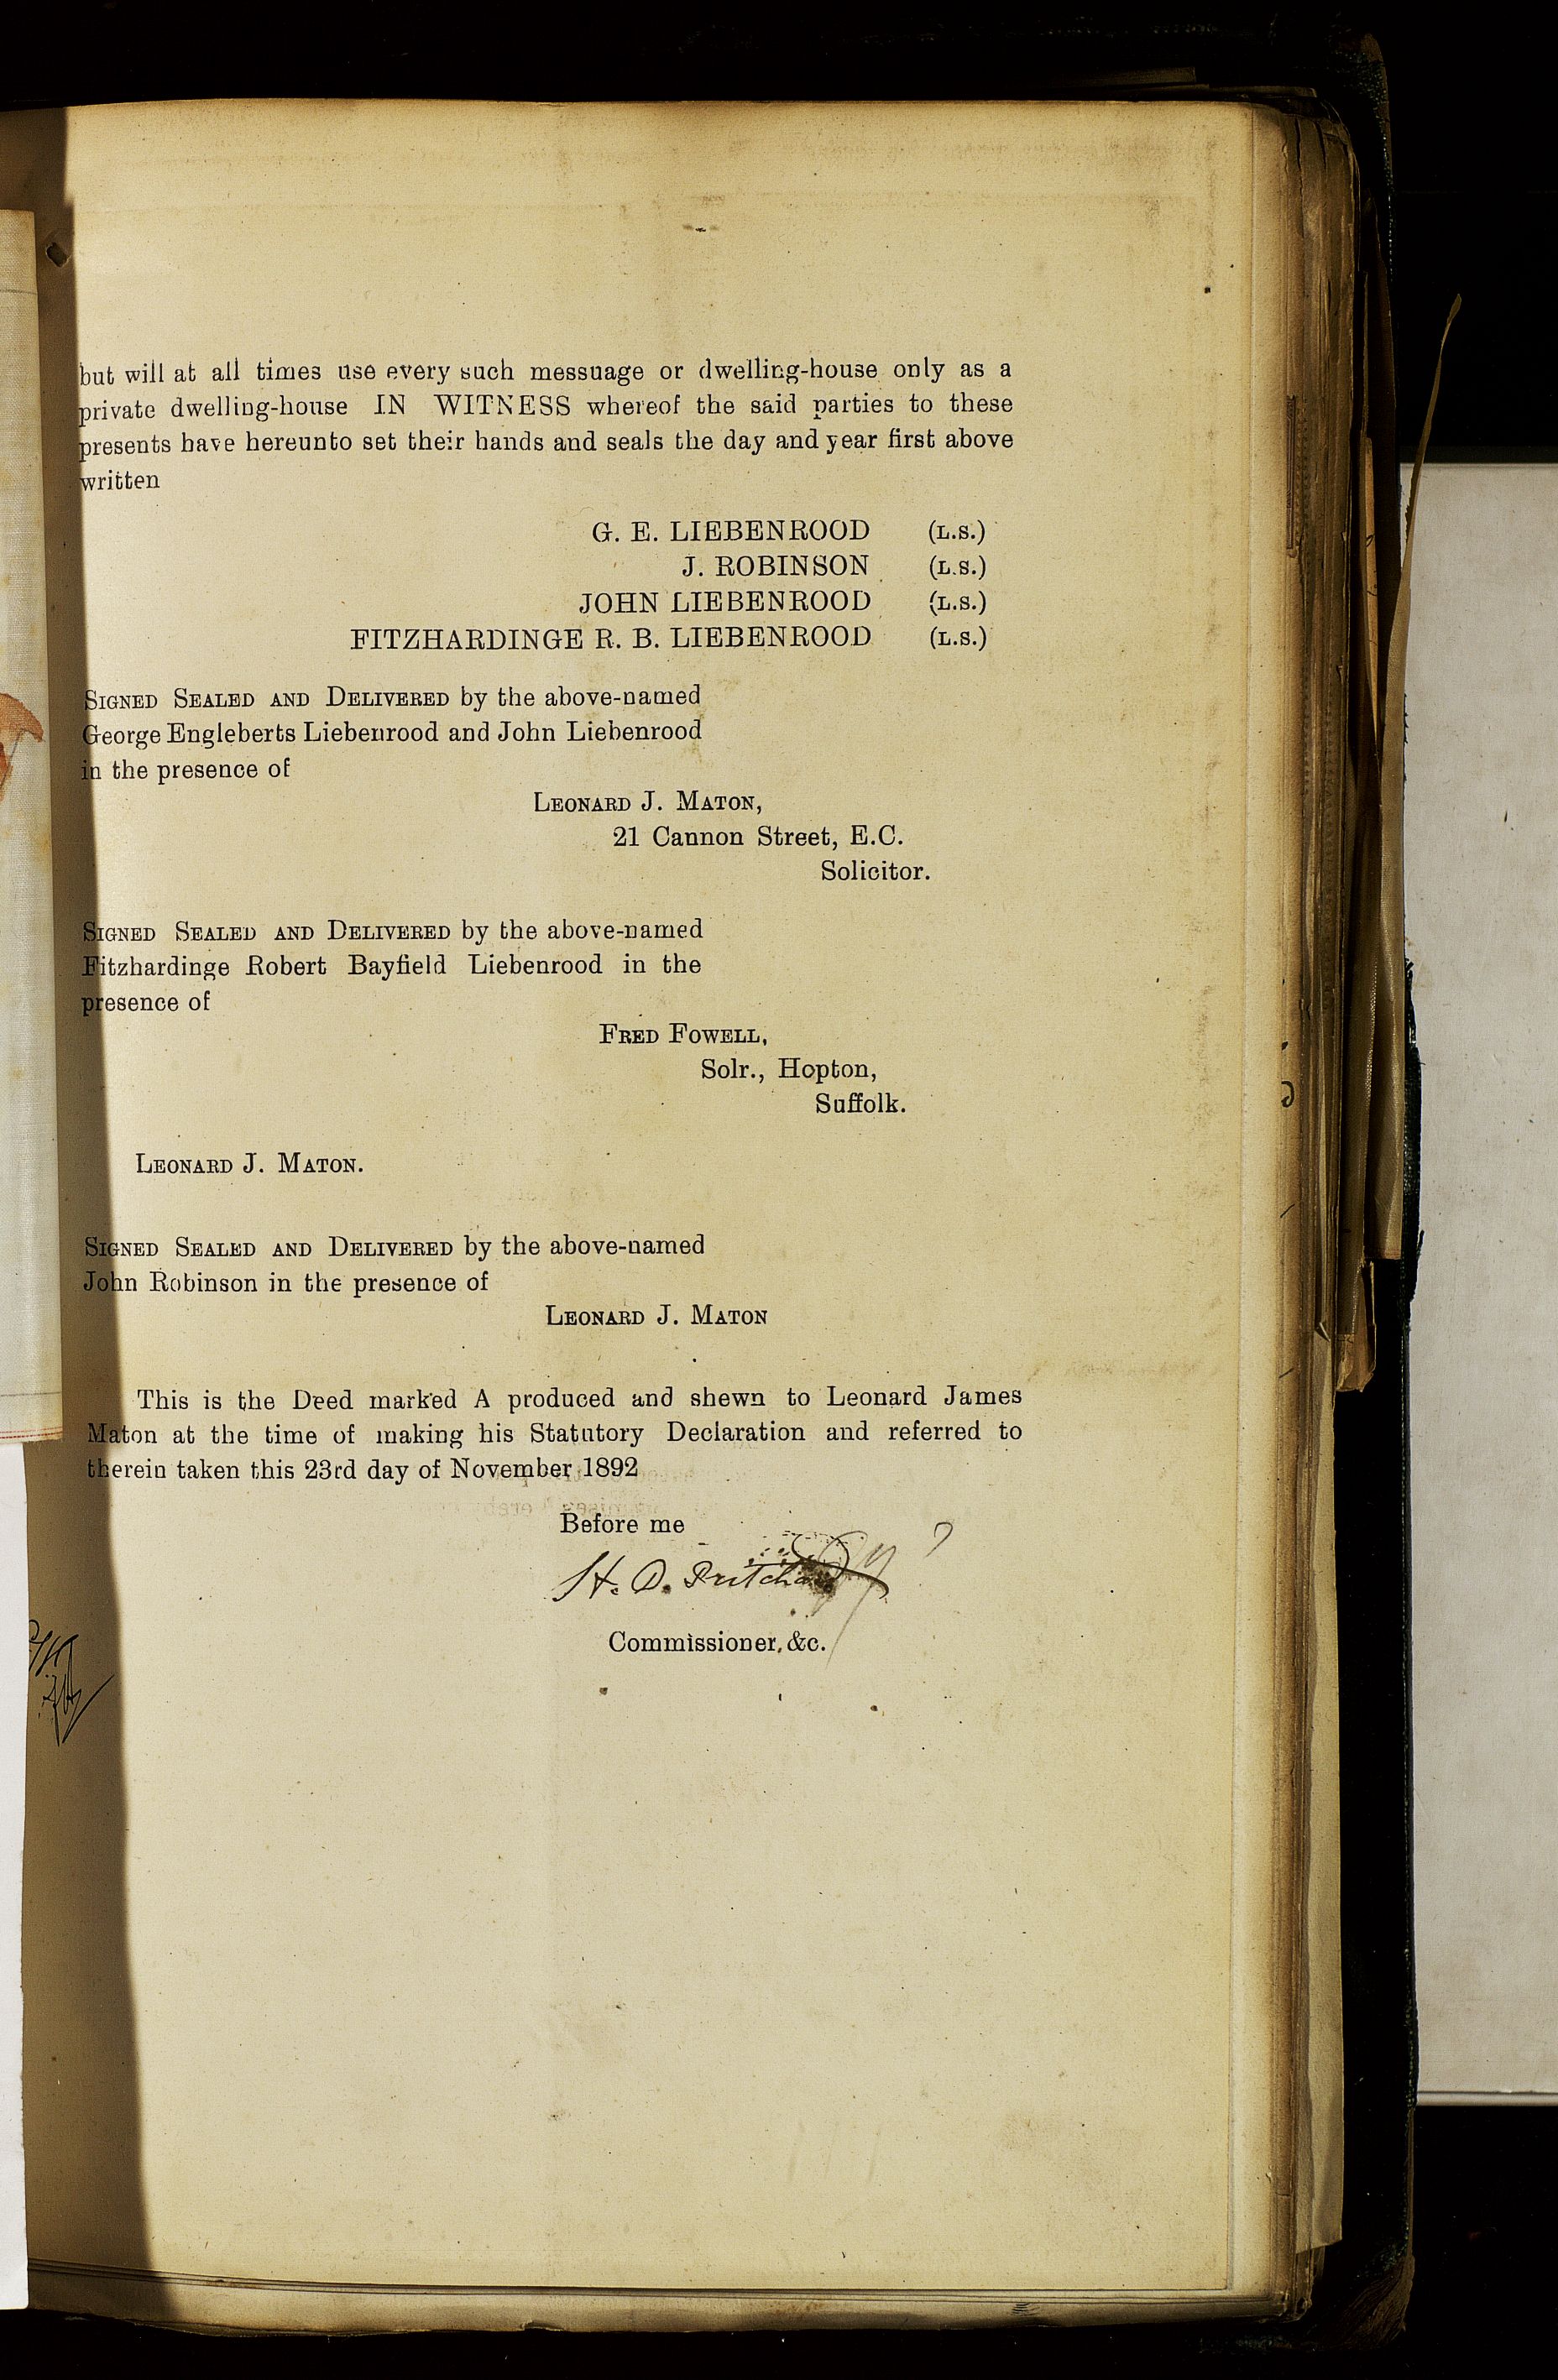 but will at all times use every such messuage or dwelling-house only as a
private dwelling-house IN WITNESS whereof the said parties to these
presents have hereunto set their hands and seals the day and year first above
written
G. E. LIEBENROOD (L.S.)
J. ROBINSON (L.S.)
JOHN LIEBENROOD (L.S.)
FITZHARDINGE R. B. LIEBENROOD (L.S.)
SIGNED SEALED AND DELIVERED by the above-named
George Engleberts Liebenrood and John Liebenrood
in the presence of
LEONARD J. MATON,
21 Cannon Street, E.C.
Solicitor.
SIGNED SEALED AND DELIVERED by the above-named
Fitzhardinge Robert Bayfield Liebenrood in the
presence of
FRED FOWELL,
Solr., Hopton,
Suffolk.
LEONARD J. MATON.
SIGNED SEALED AND DELIVERED by the above-named
John Robinson in the presence of
LEONARD J. MATON
This is the Deed marked A produced and shewn to Leonard James
Maton at the time of making his Statutory Declaration and referred to
therein taken this 23rd day of November 1892
Before me
H. D. Pritchard
Commissioner, &c.